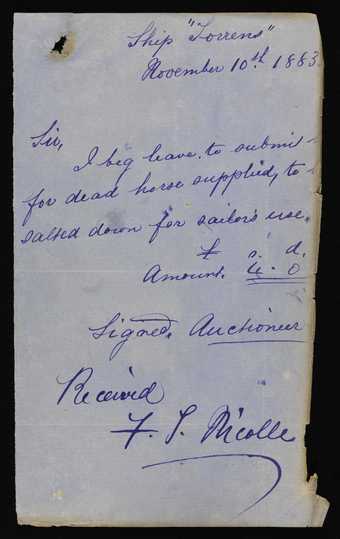 Ship "Torrens"
November 10th 1883
Sir,
I beg leave to submit
for dead horse supplied, to
salted down for sailors use.
£ s. d.
Amount. 4. 0
Signed, Auctioneer
Received
F. S. Nicolle